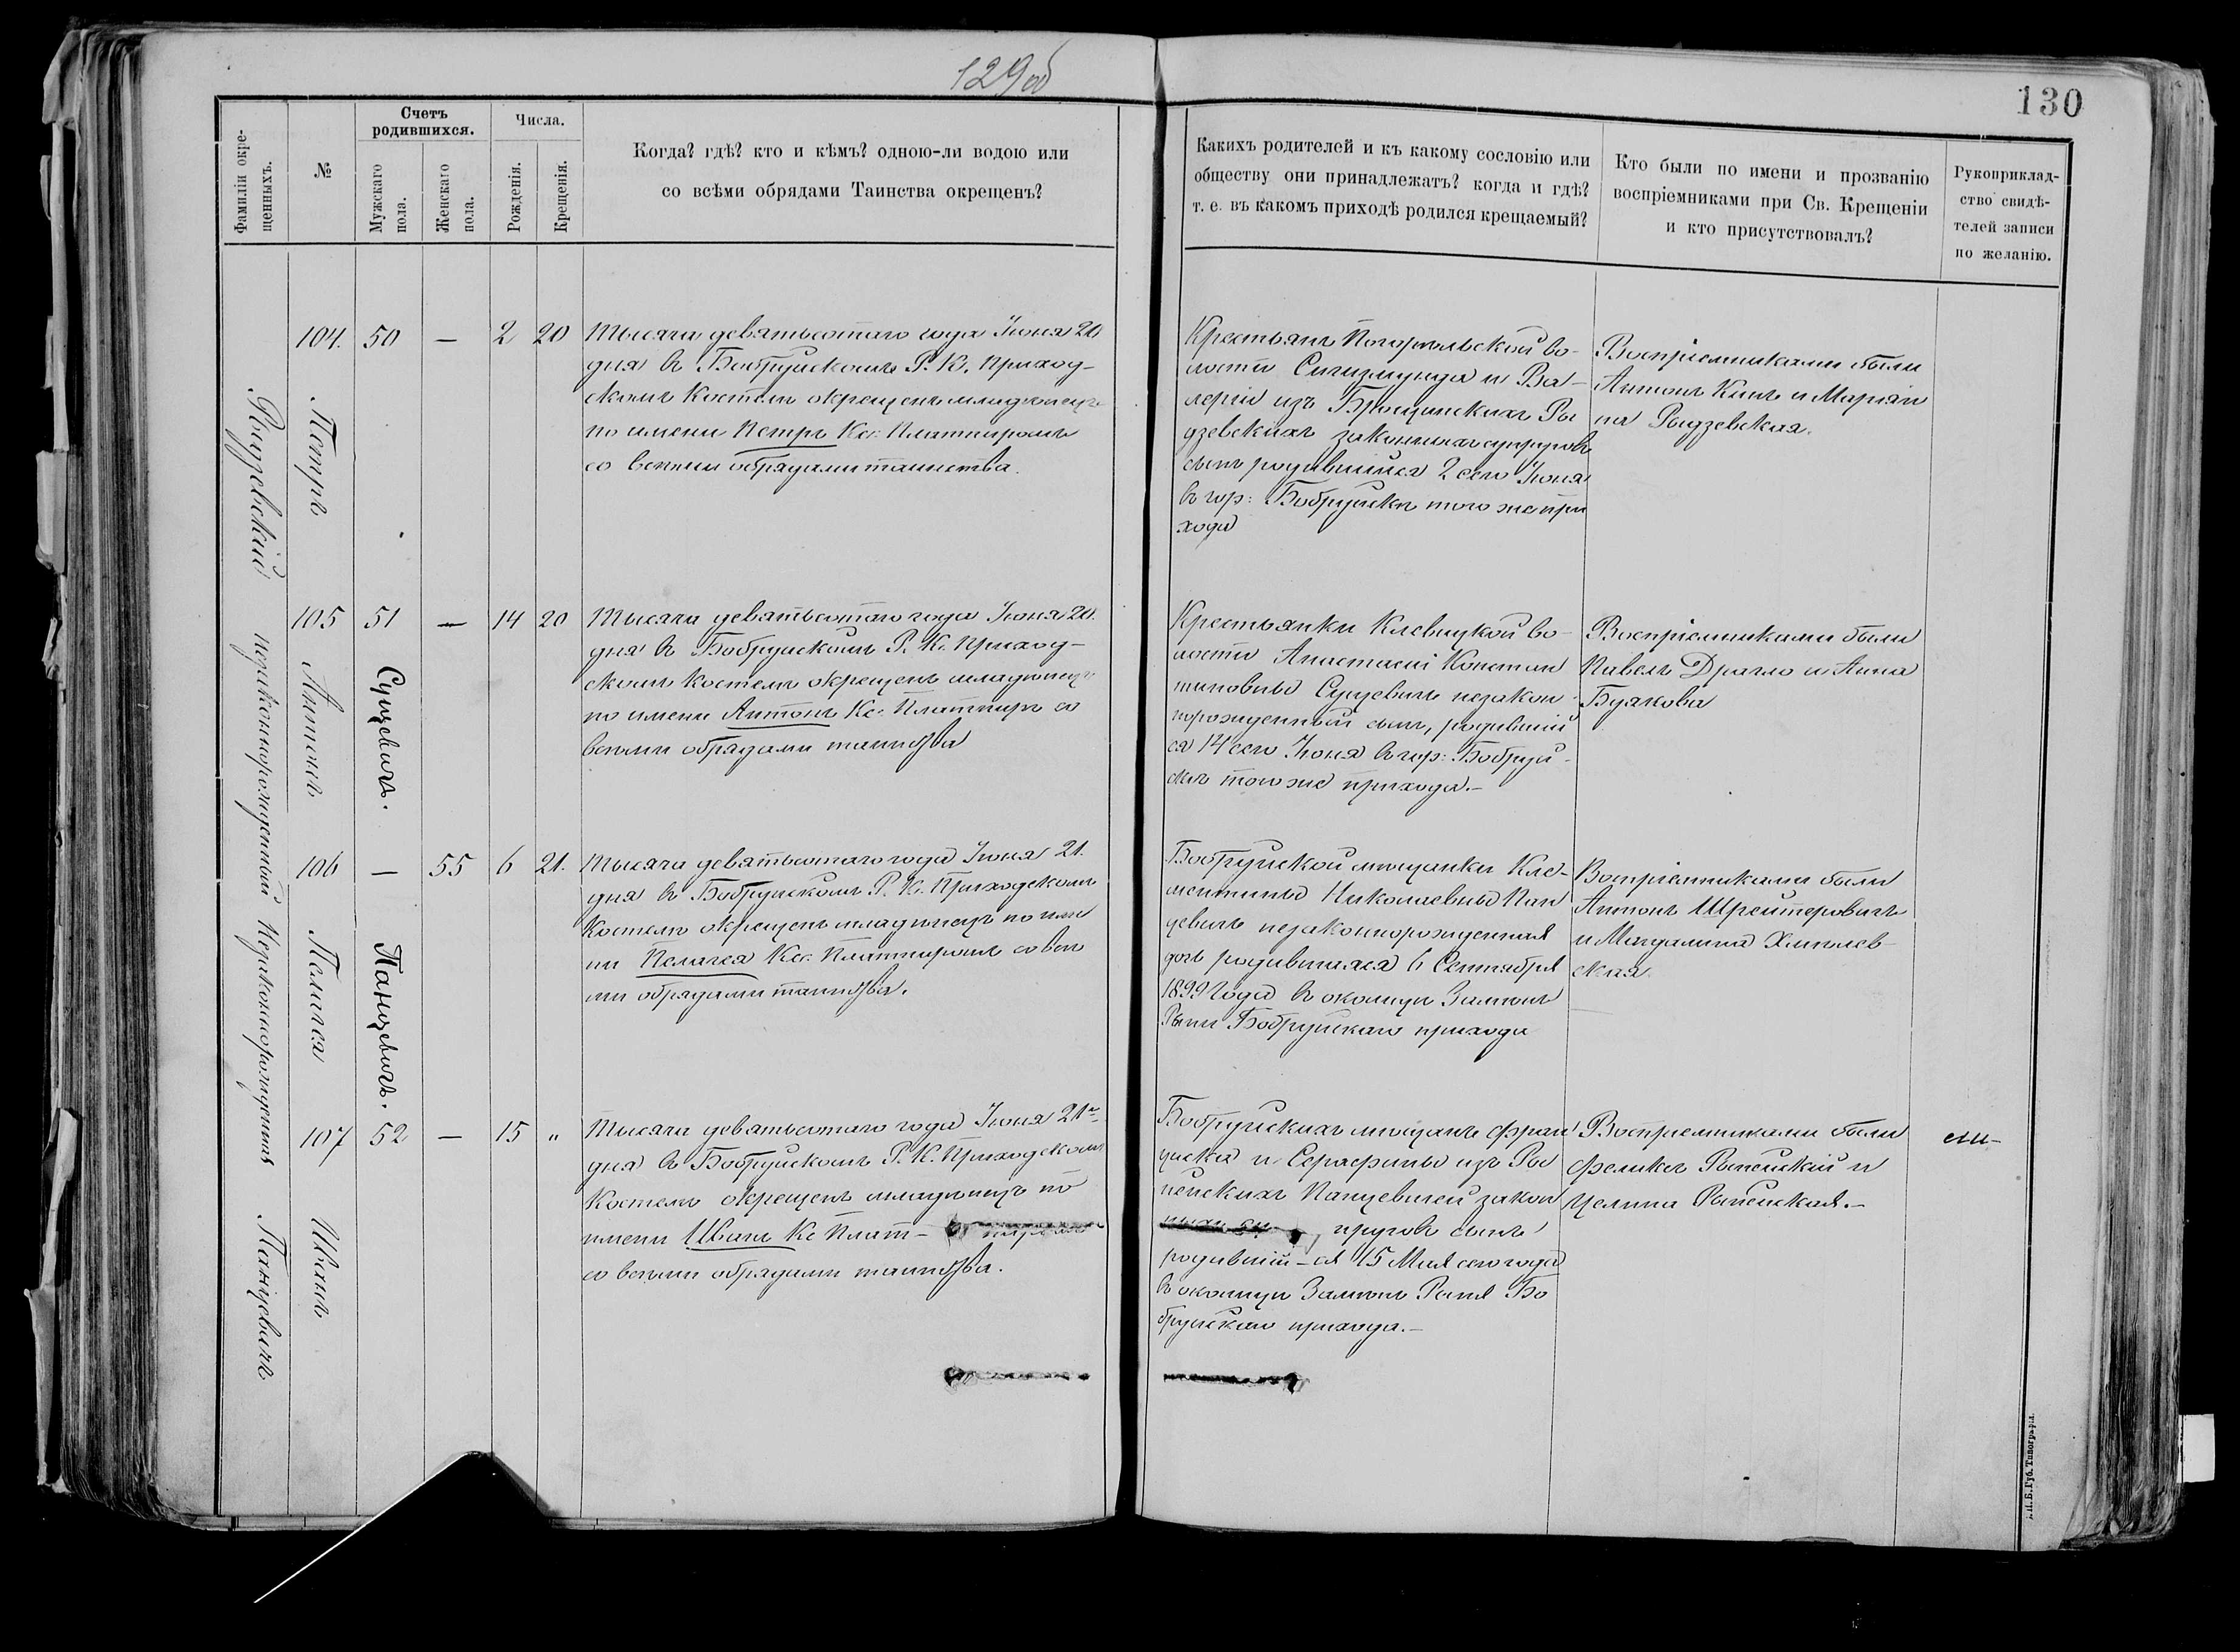 129 об
130
Фамиліи окре-
щенныхъ.
№
Счетъ
родившихся.
Мужскаго
пола.
Женскаго
пола.
Числа.
Рожденія.
Крещенія.
Когда? гдѣ? кто и кѣмъ? одною-ли водою или
со всѣми обрядами Таинства окрещенъ?
Какихъ родителей и къ какому сословію или
обществу они принадлежатъ? когда и гдѣ?
т. е. въ какомъ приходѣ родился крещаемый?
Кто были по имени и прозванію
воспріемниками при Св. Крещеніи
и кто присутствовалъ?
Рукоприклад-
ство свидѣ-
телей записи
по желанію.
Рыдзевскій
104.
Петръ
50
—
2
20
Тысяча девятьсотаго года Іюня 20
дня въ Бобруйскомъ Р. К. Приход-
скомъ Костелѣ окрещенъ младенецъ
по имени Петръ Кс. Платпиромъ
со всѣми обрядами таинства.
Крестьянъ Погорѣльской во-
лости Сигизмунда и Ва-
леріи изъ Рры
дзевскихъ законныхъ супруговъ
сынъ родившійся 2 сего Іюня
въ гор: Бобруйскѣ того же при
хода
Воспріемниками были
Антонъ Кинъ и Маріан
на Рыдзевская.
Незаконнорожденный
105
Антонъ
51
Сущевичъ.
—
14
20
Тысяча девятьсотаго года Іюня 20.
дня въ Бобруйскомъ Р. К. Приход-
скомъ Костелѣ окрещенъ младенецъ
по имени Антонъ Кс. Платпиръ со
всѣми обрядами таинства
Крестьянки Клевицкой во-
лости Анастасіи Констан
тиновны Сущевичъ незакон
норожденный сынъ, родившій
ся 14 сего Іюня въ гор: Бобруй-
скѣ того же прихода.—
Воспріемниками были
Павелъ Драгло и Анна
Буякова
Незаконнорожденная
106
Пелагея
—
Панцевичъ.
55
6
21.
Тысяча девятьсотаго года Іюня 21.
дня въ Бобруйскомъ Р. К. Приходскомъ
Костелѣ окрещенъ младенецъ по име
ни Пелагея Кс. Платпиромъ со всѣ
ми обрядами таинства.
Бобруйской мѣщанки Кле-
ментины Николаевны Пан
цевичъ незаконнорожденная
дочь родившаяся 6 Сентября
1899 года въ околицѣ
Бобруйскаго прихода
Воспріемниками были
Антонъ Шрейтеровичъ
и Магдалина Хмѣлев-
ская.
Панцевичъ
107
Иванъ
52
—
15
"
Тысяча девятьсотаго года Іюня 21
дня въ Бобруйскомъ Р. К. Приходскомъ
Костелѣ окрещенъ младенецъ по
имени Иванъ Кс Плат- пиромъ
со всѣми обрядами таинства.
Бобруйскихъ мѣщанъ Фран
циска и Серафины изъ Ры
пейскихъ Панцевичей закон
ныхъ су пруговъ сынъ
родившій-ся 15 Мая сего года
въ околицѣ Бо
бруйскаго прихода.—
Воспріемниками были
Феликсъ Рыпейскій и
Целина Рыпейская.—